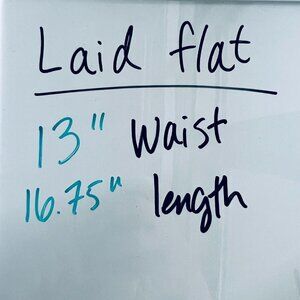 Laid flat
13" Waist
16.75" length